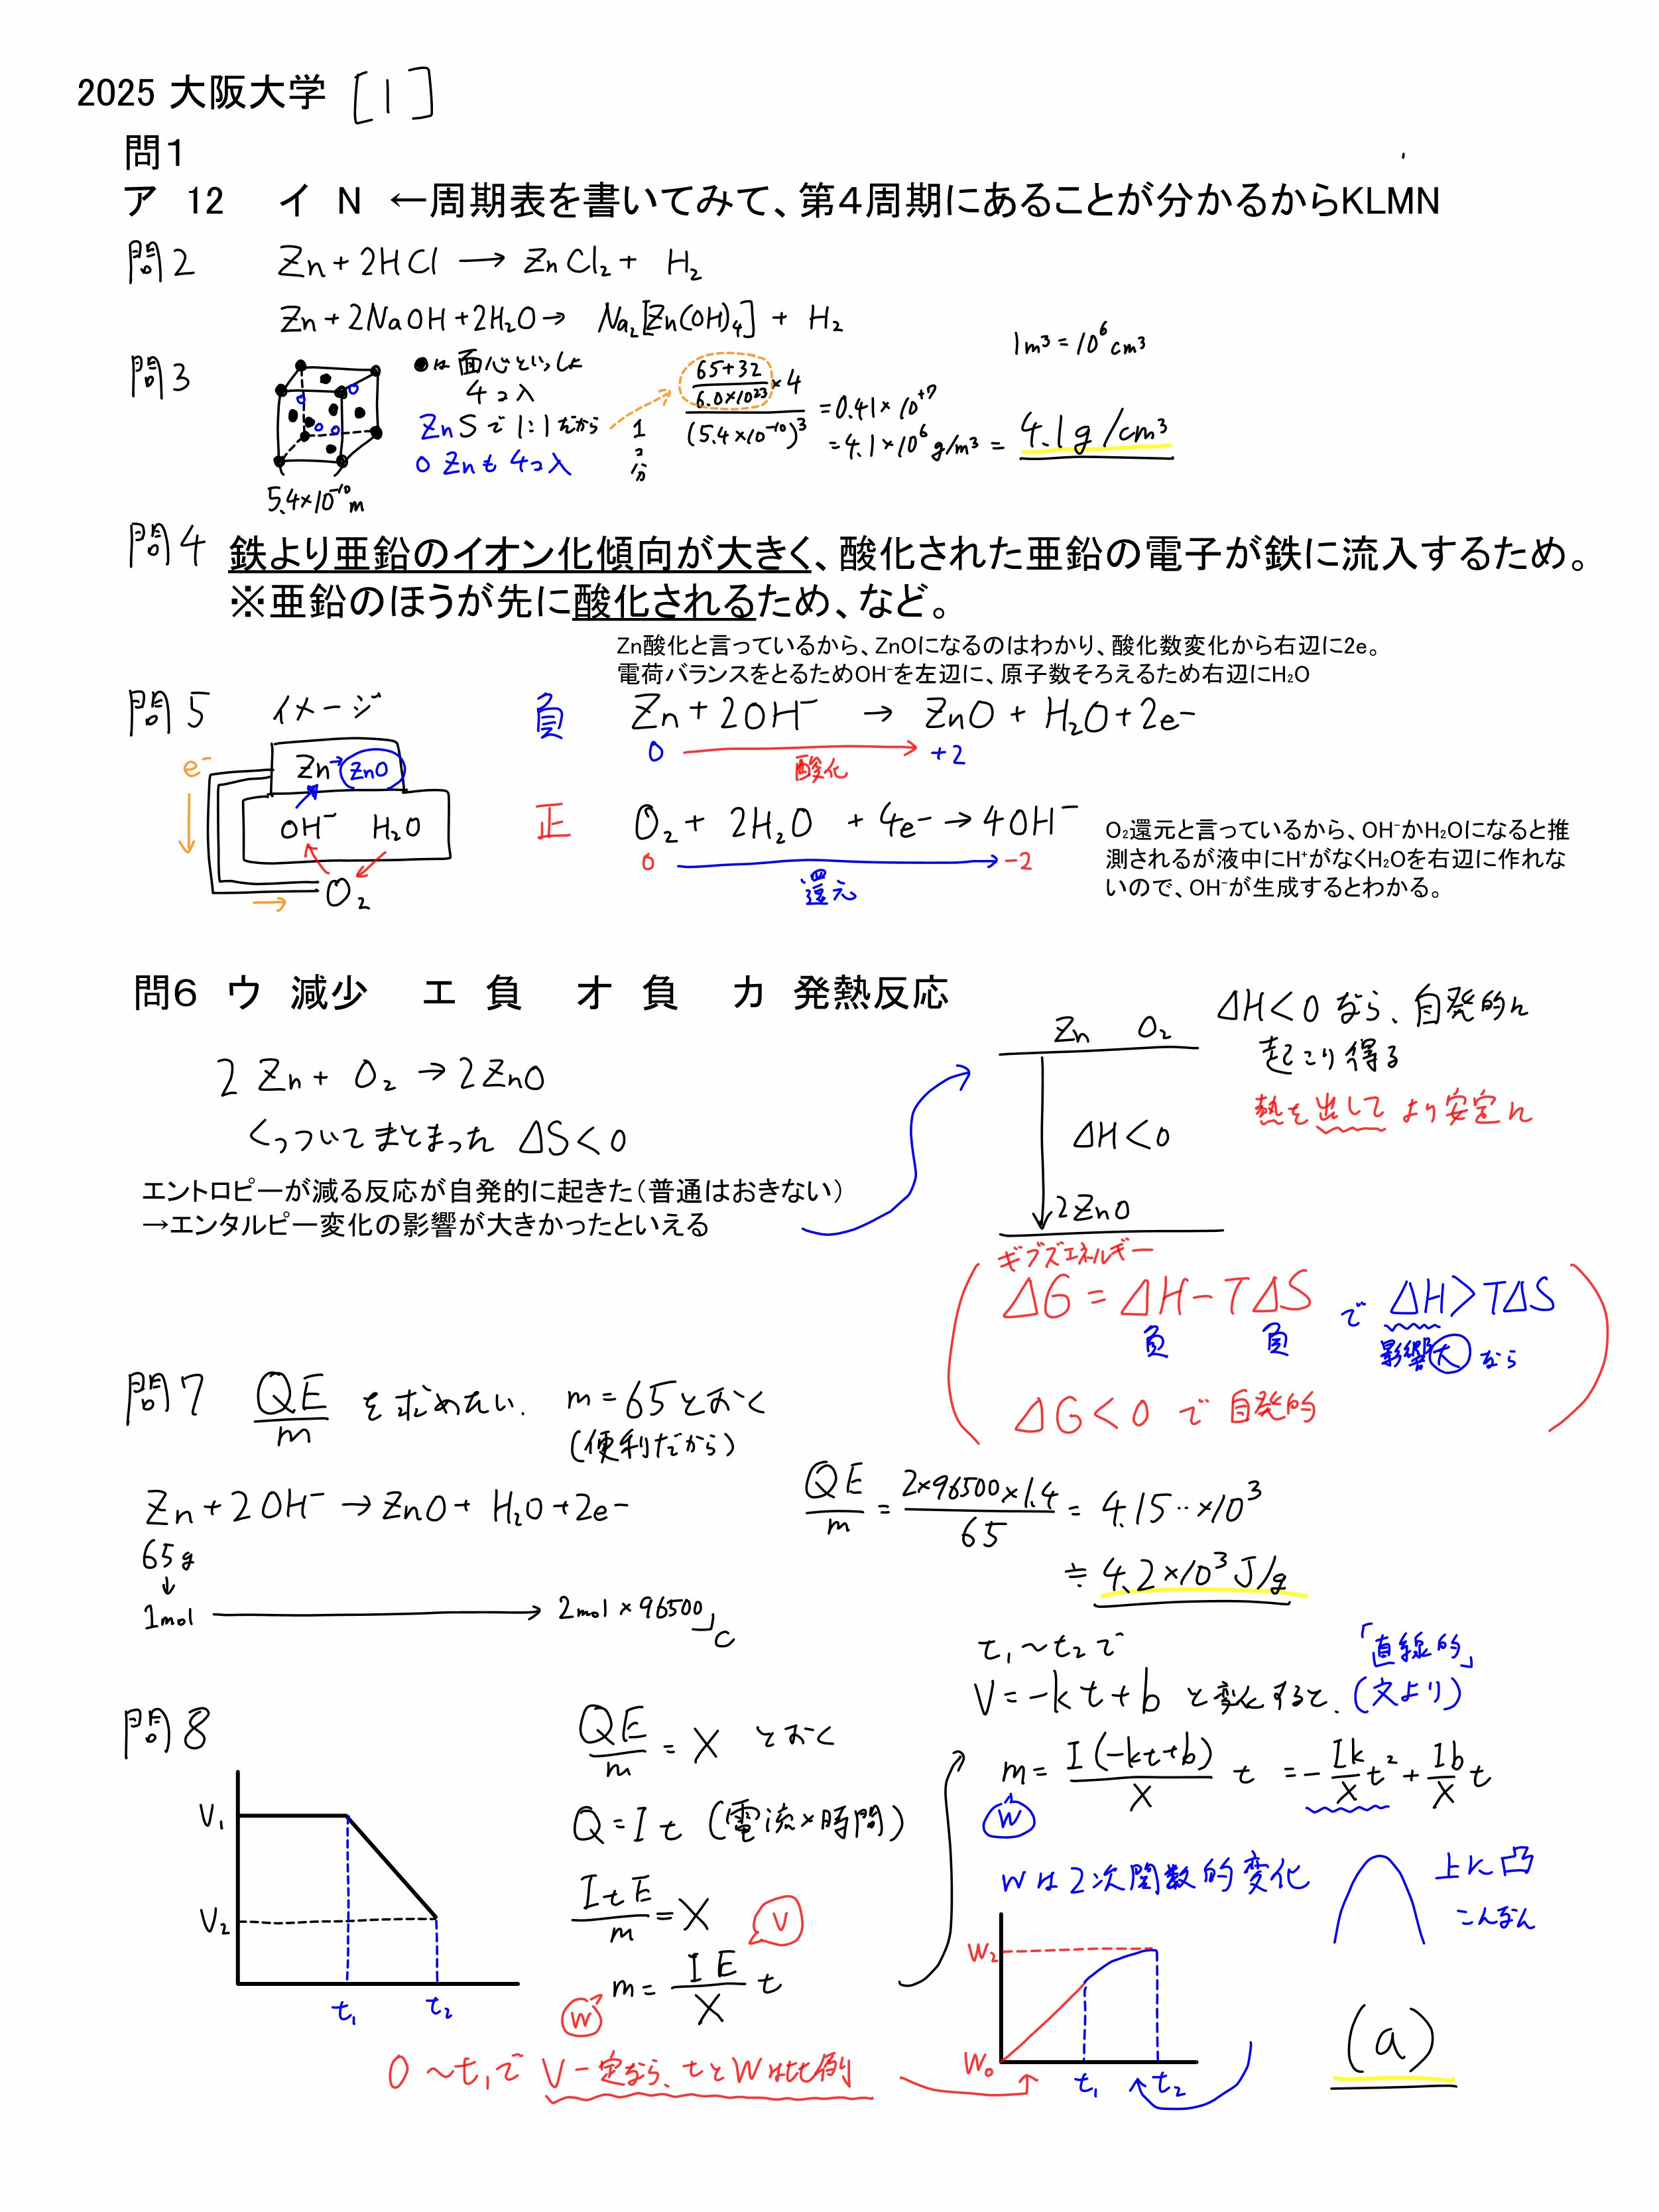 2025 大阪大学 [1]
問1
ア 12 イ N ←周期表を書いてみて、第4周期にあることが分かるからKLMN
問2 Zn + 2HCl → ZnCl₂ + H₂
Zn + 2NaOH + 2H₂O → Na₂[Zn(OH)₄] + H₂
問3
●は面心といっしょ
4コ入
ZnSで1:1だから
○ Znも4コ入
5.4×10⁻¹⁰ m
1コ分
(65+32)/(6.0×10²³) ×4 / (5.4×10⁻¹⁰)³ = 0.41×10⁺⁷
= 4.1×10⁶ g/m³ = 4.1 g/cm³
1m³ = 10⁶ cm³
問4 鉄より亜鉛のイオン化傾向が大きく、酸化された亜鉛の電子が鉄に流入するため。
※亜鉛のほうが先に酸化されるため、など。
Zn酸化と言っているから、ZnOになるのはわかり、酸化数変化から右辺に2e。
電荷バランスをとるためOH⁻を左辺に、原子数そろえるため右辺にH₂O
問5 イメージ
e⁻
Zn → ZnO
OH⁻ H₂O
O₂
負 Zn + 2OH⁻ → ZnO + H₂O + 2e⁻
0 +2
酸化
正 O₂ + 2H₂O + 4e⁻ → 4OH⁻
0 -2
還元
O₂還元と言っているから、OH⁻かH₂Oになると推
測されるが液中にH⁺がなくH₂Oを右辺に作れな
いので、OH⁻が生成するとわかる。
問6 ウ 減少 エ 負 オ 負 カ 発熱反応
2 Zn + O₂ → 2ZnO
くっついてまとまった ΔS<0
エントロピーが減る反応が自発的に起きた（普通はおきない）
→エンタルピー変化の影響が大きかったといえる
Zn O₂
ΔH<0
2ZnO
ΔH<0 なら、自発的に
起こり得る
熱を出して より安定に
ギブズエネルギー
ΔG = ΔH - TΔS で ΔH>TΔS
負 負 影響大 なら
ΔG<0 で 自発的
問7 QE/m を求めたい. m=65とおく
(便利だから)
Zn + 2OH⁻ → ZnO + H₂O + 2e⁻
65g
↓
1mol → 2mol × 96500 C
QE/m = 2×96500×1.4/65 = 4.15‥×10³
≒ 4.2×10³ J/g
問8
V₁
V₂
t₁ t₂
QE/m = X とおく
Q = It (電流×時間)
ItE/m = X
V
W m = IE/X t
0〜t₁で V一定なら、tとWは比例
t₁〜t₂で
V = -kt + b と変化すると、
「直線的」
(文より)
m = I(-kt+b)/X t = -Ik/X t² + Ib/X t
W
Wは2次関数的変化
上に凸
こんなん
W₂
W₀
t₁ t₂
(a)